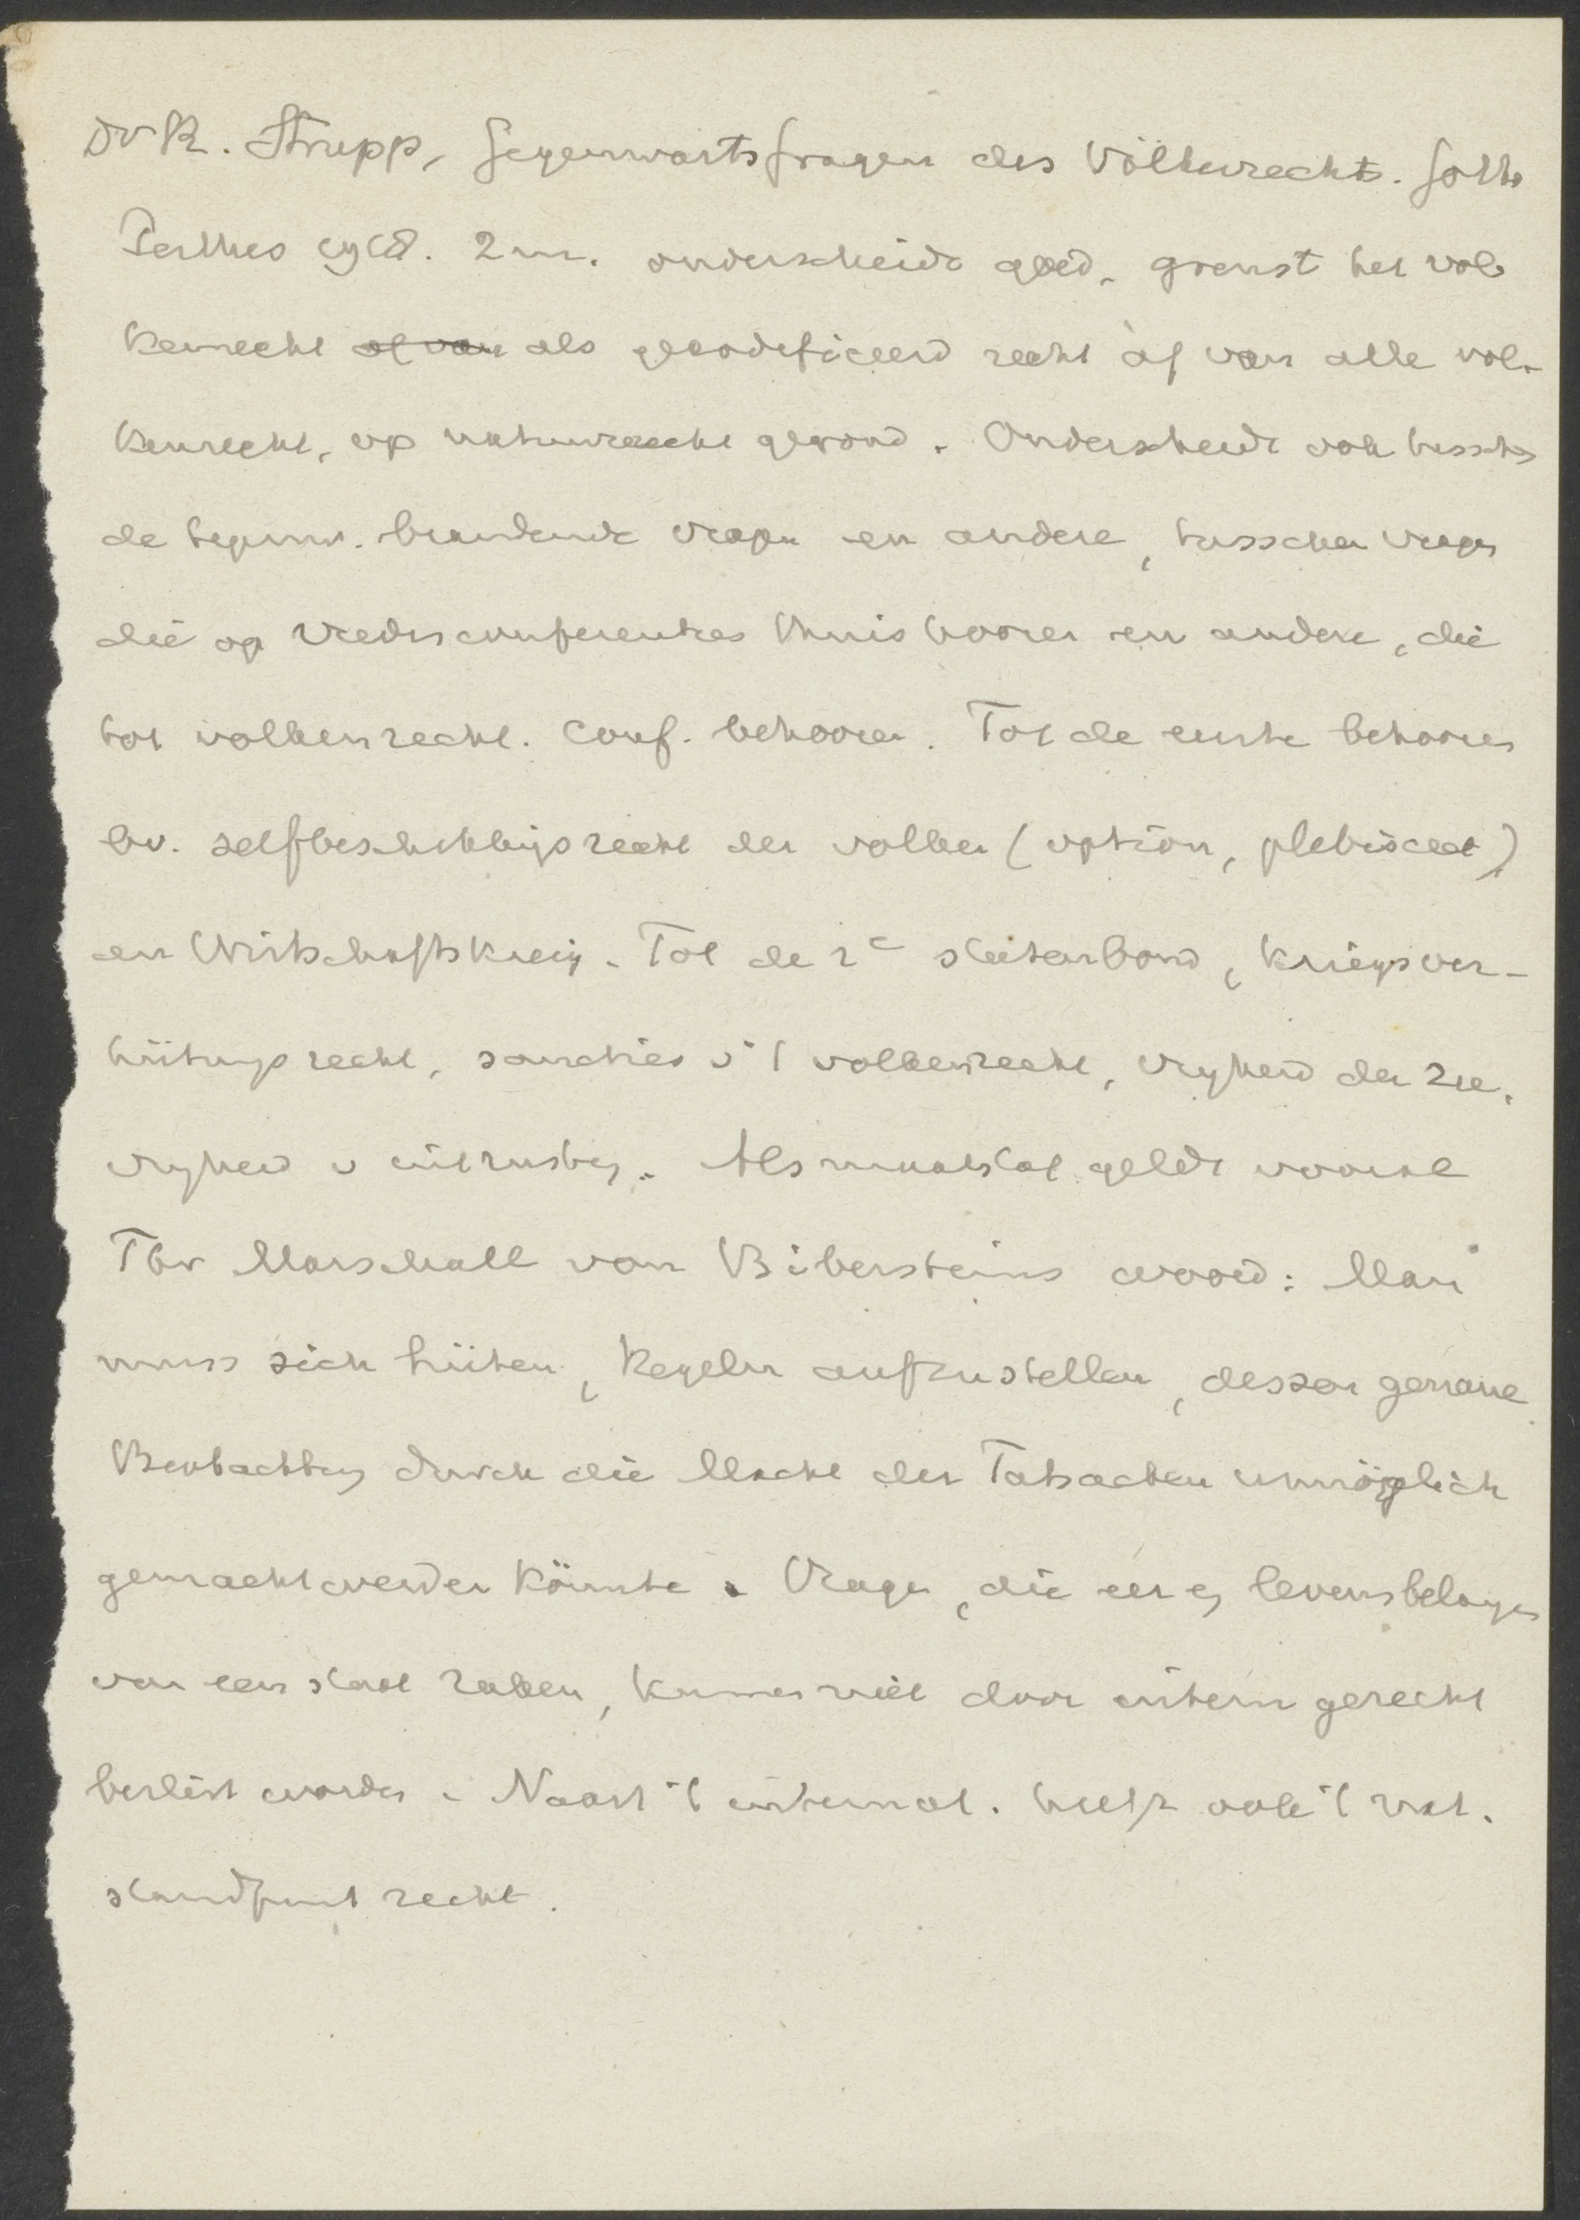 Dr K. Strupp, Gegenwartsfragen des Völkerrechts. Gotha
Perthes 1918. 2 m. onderscheidt goed, grenst het vol-
kenrecht af van als gecodificeerd recht àf van alle vol-
kenrecht, op natuurrecht gegrond. Onderscheidt ook tusschen
de tegenw. brandende vragen en andere, tusschen vragen
die op vredesconferenties thuis hooren en andere, die
tot volkenrecht. conf. behooren. Tot de eerste behooren
bv. zelfbeschikkingsrecht der volken (option, plebisciet)
en Wirtschaftskrieg. Tot de 2e statenbond, Kriegsver-
hütungsrecht, sancties v 't volkenrecht, vrijheid der zee,
vrijheid v uitrusting. Als maatstaf geldt vooral
Fhr Marschall von Bibersteins woord: Man
muss sich hüten, Regeln aufzustellen, dessen genaue
Beobachtung durch die Macht der Tatsachen unmöglich
gemacht werden könnte. Vragen, die eer en levensbelangen
van een staat raken, kunnen niet door intern gerecht
beslist worden. Naast 't internat. heeft ook 't nat.
standpunt recht.